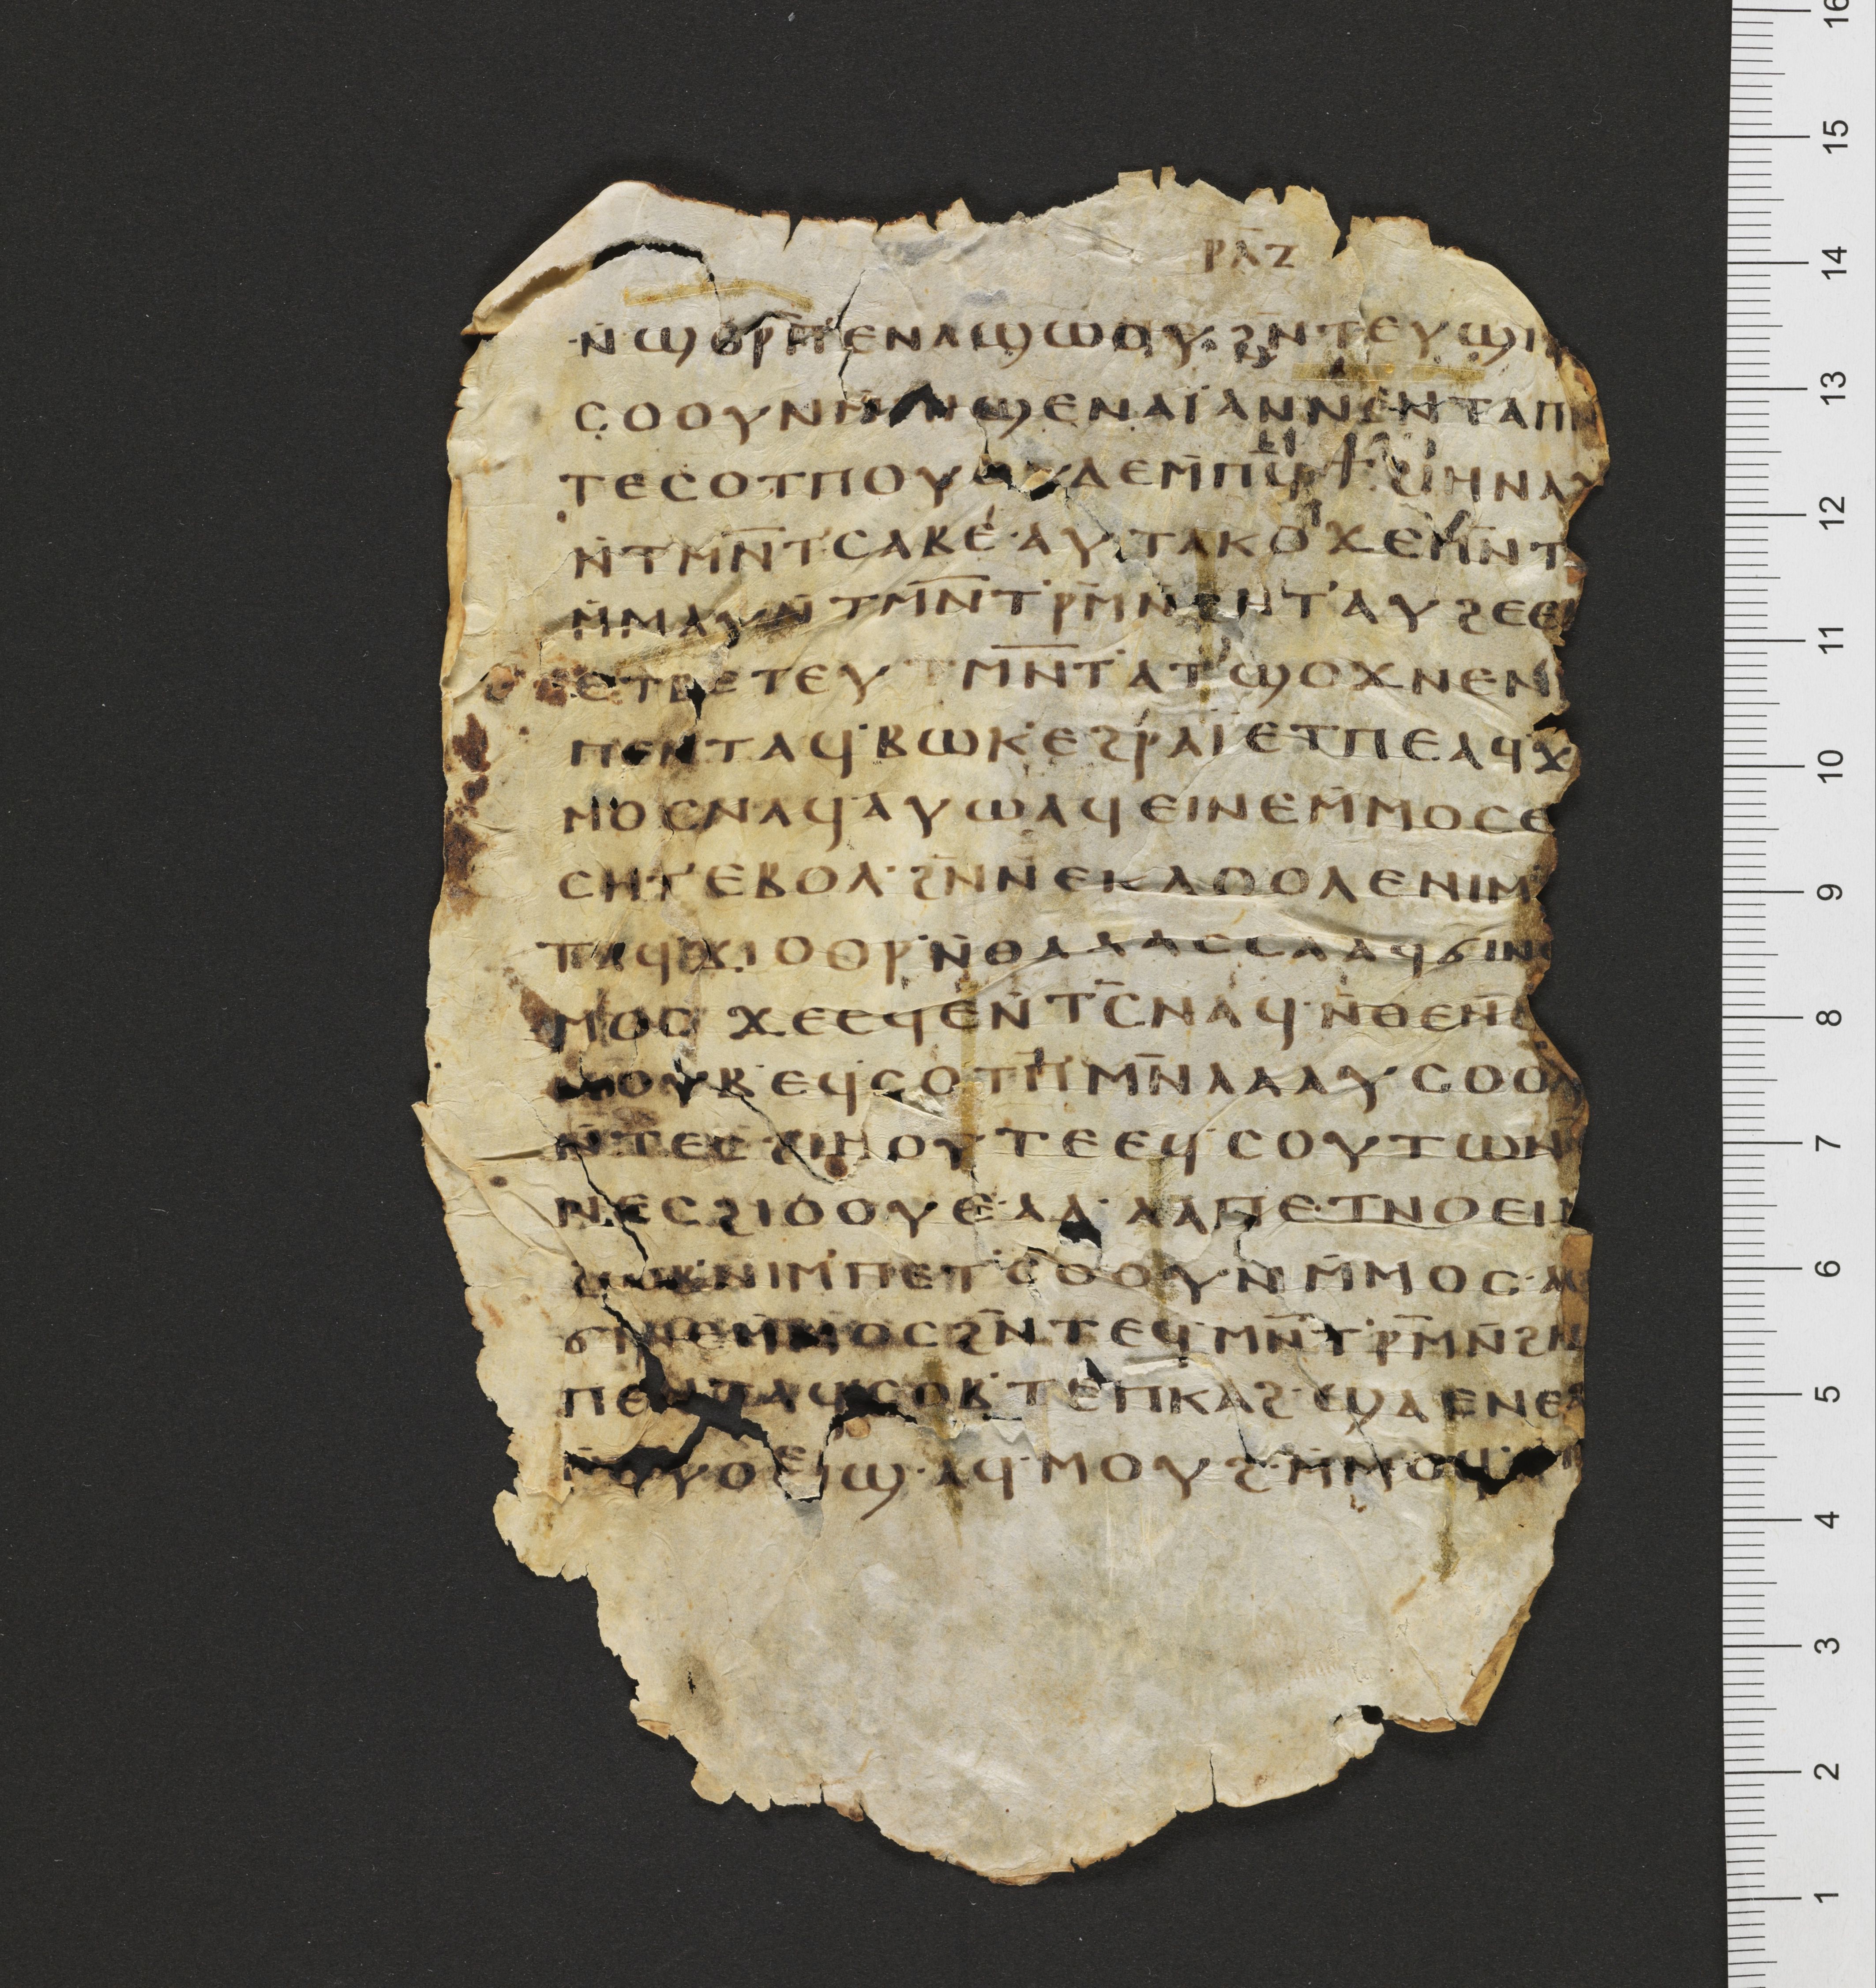 ⲣⲗ̅ⲍ
ⲛ̇ϣⲟⲣⲡ̅ⲉⲛⲁϣⲱⲟⲩ·ϩⲛ̅ⲧⲉⲩϣⲓ
ⲥⲟⲟⲩⲛ ϣⲉⲛⲁⲓ̈ⲁⲛⲛⲉⲛⲧⲁⲡⲛ
ⲧⲉⲥⲟⲧⲡⲟⲩ ⲇⲉⲙ̇ⲡ ϩⲓⲏⲛⲁⲩ
ⲛ̇ⲧⲙⲛ̅ⲧ'ⲥⲁⲃⲉ·ⲁⲩⲧⲁⲕⲟ'ϫⲉⲙⲛ̅ⲧ
ⲙ̇ⲙⲁⲩⲛ̇ⲧⲙⲛ̅ⲧ'ⲣⲙ̅ⲛϩⲏⲧ'ⲁⲩϩⲉⲉ
ⲉⲧⲃⲉⲧⲉⲩⲧⲙⲛ̅ⲧ'ⲁⲧ'ϣⲟϫⲛⲉⲛ
ⲡⲉⲛⲧⲁϥ'ⲃⲱⲕ'ⲉϩⲣⲁⲓ̈ⲉⲧⲡⲉⲁϥϫ
ⲙⲟⲥⲛⲁϥ'ⲁⲩⲱⲁϥⲉⲓⲛⲉⲙ̇ⲙⲟⲥⲉ
ⲥⲏⲧ'ⲉⲃⲟⲗ·ϩⲛ̅ⲛⲉⲕⲗⲟⲟⲗⲉⲛⲓⲙ
ⲡⲁϥ'ϫⲓⲟⲟⲣ'ⲛ̇ⲑⲁⲗⲁⲥⲥⲁⲁϥϭⲓⲛⲉ
ⲙⲟⲥ ϫⲉⲉϥⲉⲛ̇ⲧⲥ̅ⲛⲁϥ·ⲛ̇ⲑⲉⲛ̇
ⲛⲟⲩⲃ'ⲉϥⲥⲟⲧⲡ̅ⲙⲛ̅ⲗⲁⲁⲩⲥⲟⲟ
ⲛ̇ⲧⲉⲥϩⲓⲏⲟⲩⲧⲉⲉϥ'ⲥⲟⲩⲧⲱⲛ
ⲛⲉⲥϩⲓⲟⲟⲩⲉ·ⲁⲗ·ⲗⲁⲡⲉ·ⲧⲛⲟⲉⲓ
ϩⲱⲕ'ⲛⲓⲙ'ⲡⲉⲧ'ⲥⲟⲟⲩⲛ ⲙ̇ⲙⲟⲥ·ⲁ
ϭⲛⲉⲙ̇ⲙⲟⲥϩⲛ̅ⲧⲉϥ'ⲙⲛ̅ⲧ'ⲣⲙ̅ⲛ̇ϩⲏ
ⲡⲉⲛⲧⲁϥⲥⲟⲃ'ⲧⲉⲡⲕⲁϩ·ϣⲁⲉⲛⲉϩ
ⲛ̇ⲟⲩⲟⲉⲓϣ·ⲁϥ·ⲙⲟⲩϩ·ⲙ̇ⲙⲟϥ·